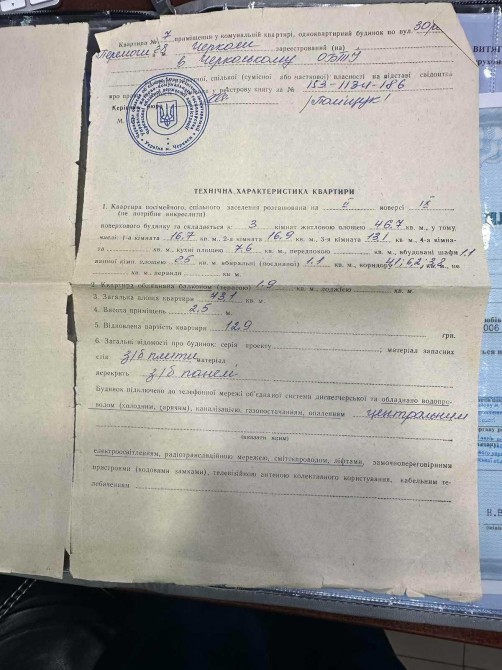 Квартира № 7 приміщення у комунальній квартирі, одноквартирний будинок по вул.
Перемоги м. Черкаси зареєстрований (на)
в Черкаському ОБТІ
спільної (сумісної або часткової) власності на підставі свідоцтва
про право реєстрову книгу за №
/Поліщук/
М.
ТЕХНІЧНА ХАРАКТЕРИСТИКА КВАРТИРИ
1. Квартира посімейного, спільного заселення розташована на II поверсі IX
(не потрібне викреслити)
поверхового будинку та складається з 3 кімнат житловою площею 46,7 кв. м., у тому
числі: 1-а кімната 16,7 кв. м, 2-а кімната 16,9 кв. м, 3-я кімната 13,1 кв. м., 4-а кімна-
та кв. м., кухні площею 7,6 кв. м., передпокою кв. м., вбудовані шафи 1,1
ванної кімн. площею 2,5 кв. м., вбиральні (поєднаної) 1,1 кв. м., коридору
кв. м., веранди кв. м.
2. Квартира обладнана балконом (терасою) 1,9 кв. м., лоджією кв. м.
3. Загальна площа квартири 73,1 кв. м.
4. Висота приміщень 2.5 м.
5. Відновлена вартість квартири 129 грн.
6. Загальні відомості про будинок: серія проекту ; матеріал
стін з/б плити матеріал
перекрить з/б панелі
Будинок підключено до телефонної мережі об'єднаної системи диспетчерської та обладнано водопро-
водом (холодним, гарячим), каналізацією, газопостачанням, опаленням центральним
(вказати яким)
електроосвітленням, радіотрансляційною мережею, сміттєпроводом, ліфтами, замочнопереговорними
пристроями (кодовими замками), телевізійною антеною колективного користування, кабельним те-
лебаченням
ВИТЯГ
006